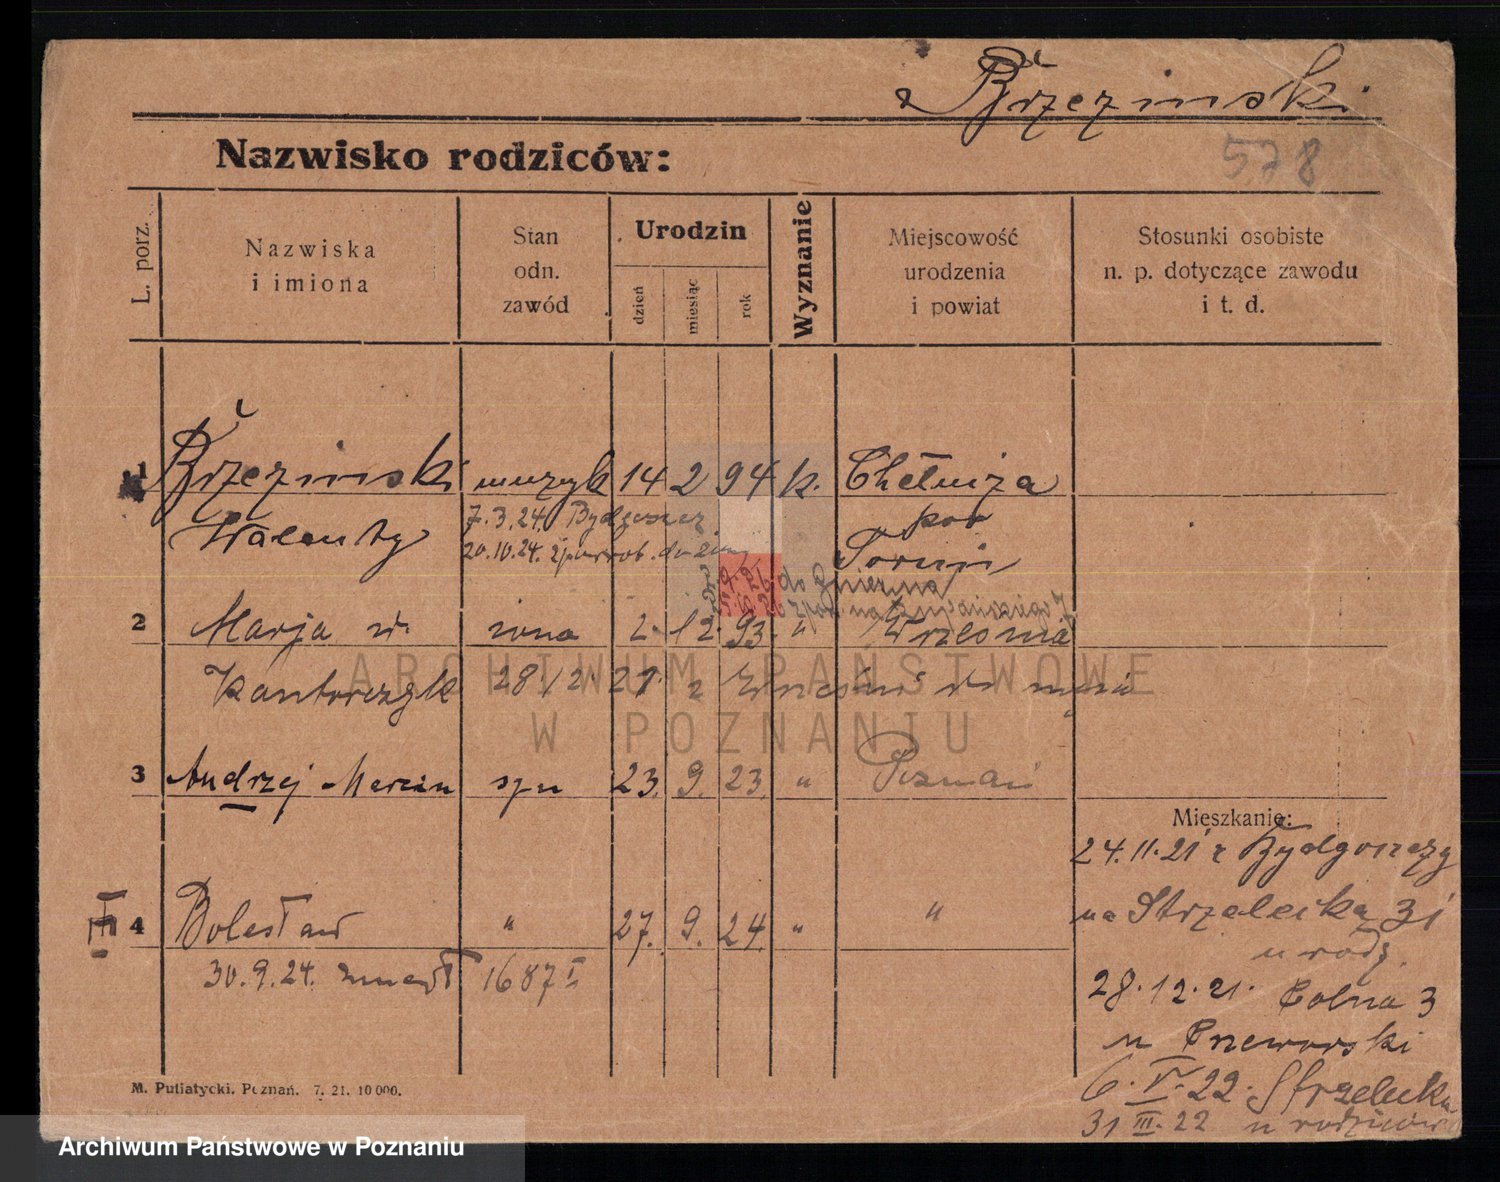 Brzezinski
578
Nazwisko rodziców:
L. porz.
Nazwiska
i imiona
Stan
odn.
zawód
Urodzin
dzień
miesiąc
rok
Wyznanie
Miejscowość
urodzenia
i powiat
Stosunki osobiste
n. p. dotyczące zawodu
i t. d.
1 Brzezinski muzyk 14 2 94 k. Chełmża
Walenty pow
Toruń
7.3.24. Bydgoszcz
20.10.24.
do Gniezna
2 Marja żona 2. 12. 93. " Września
Kantorczyk 28.12. 21. z
3 Andrzej-Marcin syn 23. 9. 23. " Poznań
4 Bolesław " 27. 9. 24. " "
30.9.24. zmarł 1687 I
III
Mieszkanie:
24.11.21 z Bydgoszczy
na Strzelecka 31
u rodz.
28.12.21. Polna 3
u
6.V.22. Strzelecka
31 III. 22 u rodziców
M. Putiatycki. Poznań. 7. 21. 10 000.
ARCHIWUM PAŃSTWOWE
W POZNANIU
Archiwum Państwowe w Poznaniu